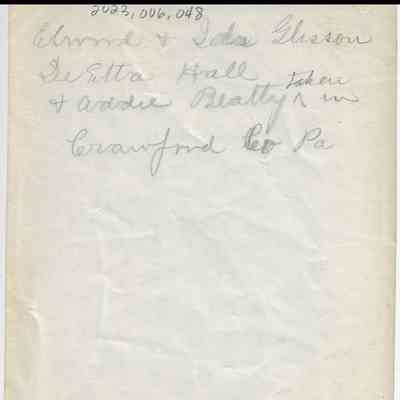 2023,006,048
Elwood & Ida Glisson
DeEtta Hall
& Addie Beatty ^ taken in
Crawford Co Pa